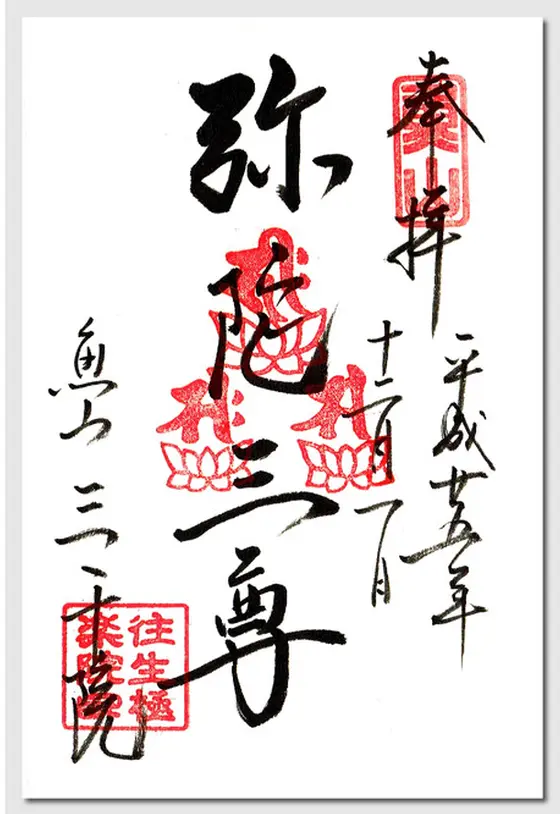 奉拝
平成廿五年
十二月一日
弥陀三尊
魚山 三千院
往生極
楽院